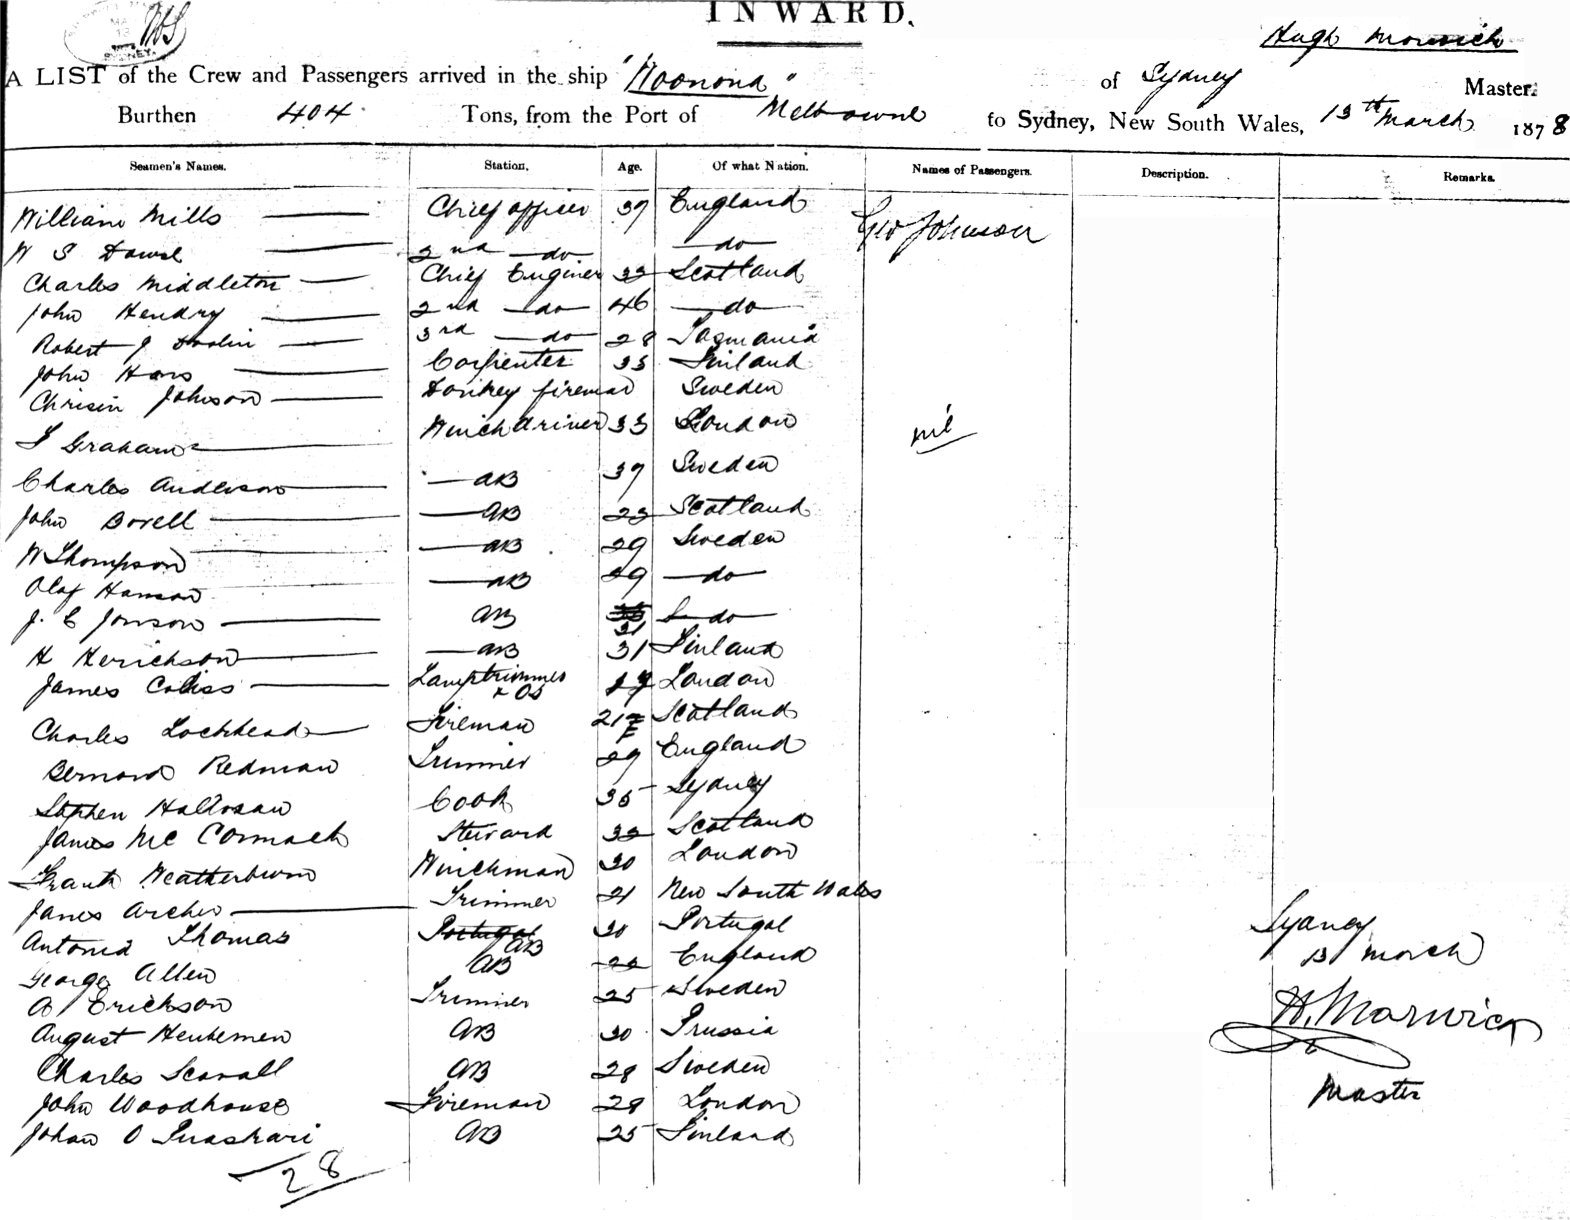 INWARD.
Hugh Morwick
A LIST of the Crew and Passengers arrived in the ship "Woonona" of Sydney Master.
Burthen 404 Tons, from the Port of Melbourne to Sydney, New South Wales, 13th March 1878
Seamen's Names. Station. Age. Of what Nation. Names of Passengers. Description. Remarks.
William Mills Chief officer 37 England Geo Johnson
W S 2nd do do
Charles Middleton Chief Enginer 32 Scotland
John Hendry 2nd do 46 do
Robert J 3rd do 28 Tasmania
John Carpenter 33 Finland
Johnson Donkey fireman Sweden
Graham Winch driver 33 London nil
Charles Anderson AB 37 Sweden
John Borell AB 23 Scotland
W Thompson AB 29 Sweden
Olaf Hanson AB 29 do
J. E Jonson AB 31 do
H Herickson AB 31 Finland
James Lamptrimmer & OS London
Charles Lochhead Fireman 21 Scotland
Bernard Redman Trimmer 29 England
Stephen Cook 35 Sydney
James McCormack Steward 32 Scotland
Frank Weatherburn Winchman 30 London
James Archer Trimmer 21 New South Wales
Antonia Thomas Portugal AB 30 Portugal
George Allen AB 22 England
A Erickson Trimmer 25 Sweden
August AB 30 Prussia
Charles AB 28 Sweden
John Woodhouse Fireman 28 London
Johan O AB 25 Finland
28
Sydney
13 March
H. Marwick
Master